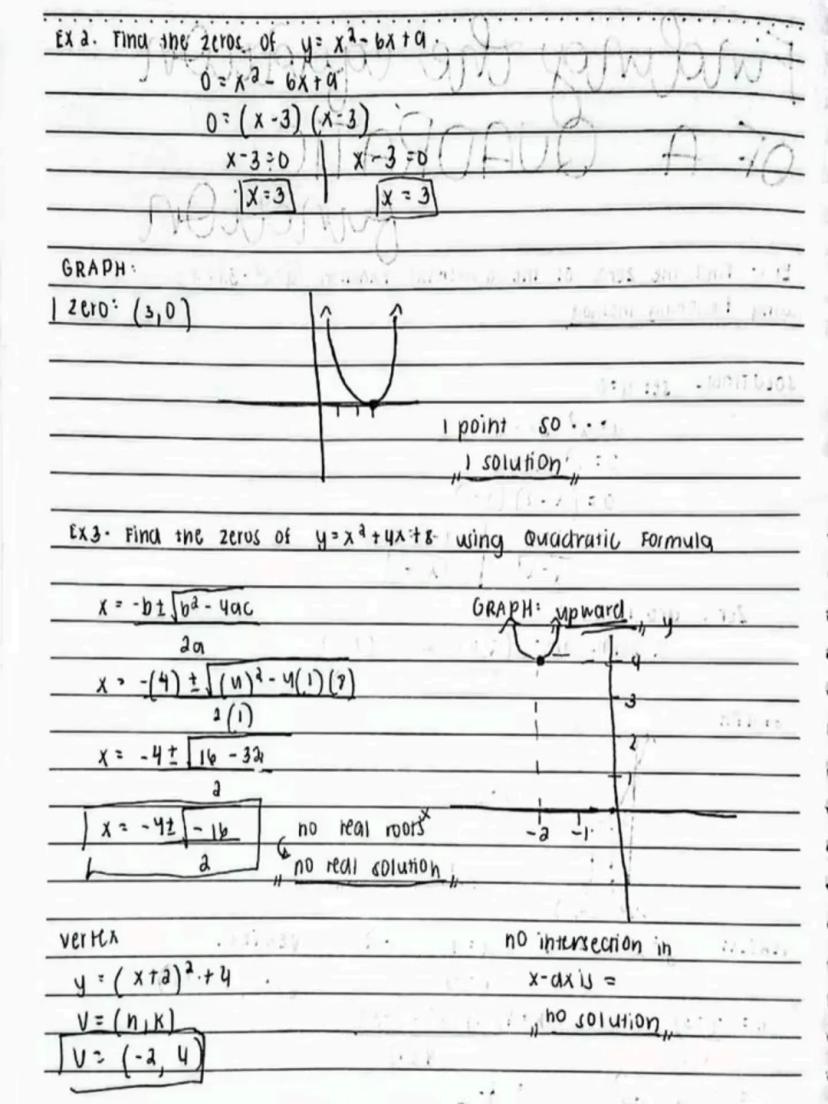 Ex 2. Find the zeros of y = x² - 6x + 9.
0 = x² - 6x + 9
0 = (x-3) (x-3)
x-3=0 | x-3=0
x=3 x = 3
GRAPH:
1 zero: (3,0)
1 point so...
1 solution
Ex 3. Find the zeros of y = x² + 4x + 8 using Quadratic Formula
x = -b ± √b² - 4ac
2a
GRAPH: upward
y
x = -(4) ± √(4)² - 4(1)(8)
2(1)
x = -4 ± √16 - 32
2
x = -4 ± √-16
2
no real roots
no real solution
4
3
2
1
x
-2 -1
vertex
y = (x+2)² + 4
V = (h, k)
V = (-2, 4)
no intersection in
x-axis =
no solution